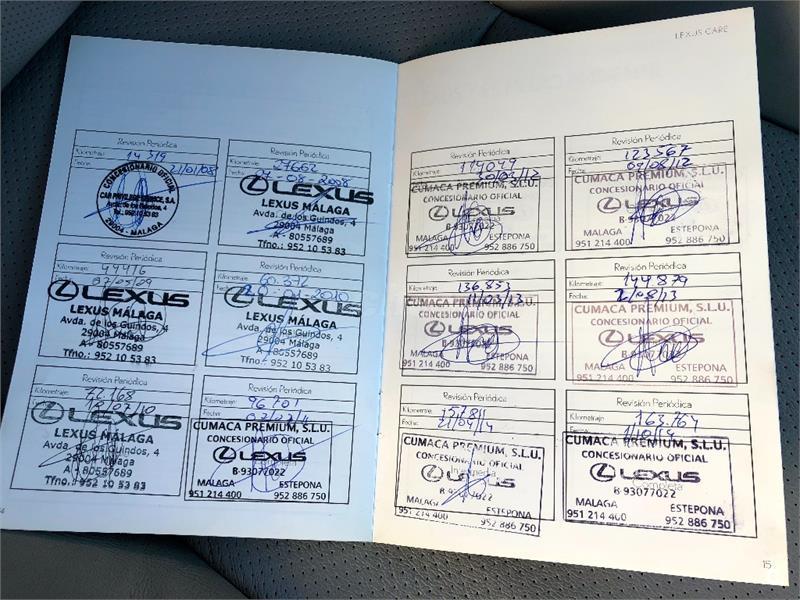 Revisión Periódica
Kilometraje: 14319
Fecha: 21/01/08
CONCESIONARIO OFICIAL
CAR PRIVILEGE SERVICE, S.A.
Avda. de los Guindos, 4
Tel.: 952 10 53 83
29004 - MALAGA
Revisión Periódica
Kilometraje: 27662
Fecha: 07-08-2008
LEXUS
LEXUS MÁLAGA
Avda. de los Guindos, 4
29004 Málaga
A - 80557689
Tfno.: 952 10 53 83
Revisión Periódica
Kilometraje: 44416
Fecha: 07/05/09
LEXUS
LEXUS MÁLAGA
Avda. de los Guindos, 4
29004 Málaga
A - 80557689
Tfno.: 952 10 53 83
Revisión Periódica
Kilometraje:
Fecha: 2010
LEXUS
LEXUS MÁLAGA
Avda. de los Guindos, 4
29004 Málaga
A - 80557689
Tfno.: 952 10 53 83
Revisión Periódica
Kilometraje:
LEXUS
LEXUS MÁLAGA
Avda. de los Guindos, 4
29004 Málaga
A - 80557689
Tfno.: 952 10 53 83
Revisión Periódica
Kilometraje: 96701
Fecha:
CUMACA PREMIUM, S.L.U.
CONCESIONARIO OFICIAL
LEXUS
B-93077022
MALAGA ESTEPONA
951 214 400 952 886 750
LEXUS CARE
Revisión Periódica
Kilometraje: 114049
Fecha:
CUMACA PREMIUM, S.L.U.
CONCESIONARIO OFICIAL
LEXUS
B-93077022
MALAGA ESTEPONA
951 214 400 952 886 750
Revisión Periódica
Kilometraje: 123567
Fecha: 09/08/12
CUMACA PREMIUM, S.L.U.
CONCESIONARIO OFICIAL
LEXUS
B-93077022
MALAGA ESTEPONA
951 214 400 952 886 750
Revisión Periódica
Kilometraje: 136.853
Fecha: 11/03/13
CUMACA PREMIUM, S.L.U.
CONCESIONARIO OFICIAL
LEXUS
B-93077022
MALAGA ESTEPONA
951 214 400 952 886 750
Revisión Periódica
Kilometraje: 144879
Fecha: 21/08/13
CUMACA PREMIUM, S.L.U.
CONCESIONARIO OFICIAL
LEXUS
B-93077022
MALAGA ESTEPONA
951 214 400 952 886 750
Revisión Periódica
Kilometraje:
Fecha: 21/04/14
CUMACA PREMIUM, S.L.U.
CONCESIONARIO OFICIAL
LEXUS
B-93077022
MALAGA ESTEPONA
951 214 400 952 886 750
Revisión Periódica
Kilometraje: 163.764
Fecha:
CUMACA PREMIUM, S.L.U.
CONCESIONARIO OFICIAL
LEXUS
Completa
B-93077022
MALAGA ESTEPONA
951 214 400 952 886 750
15